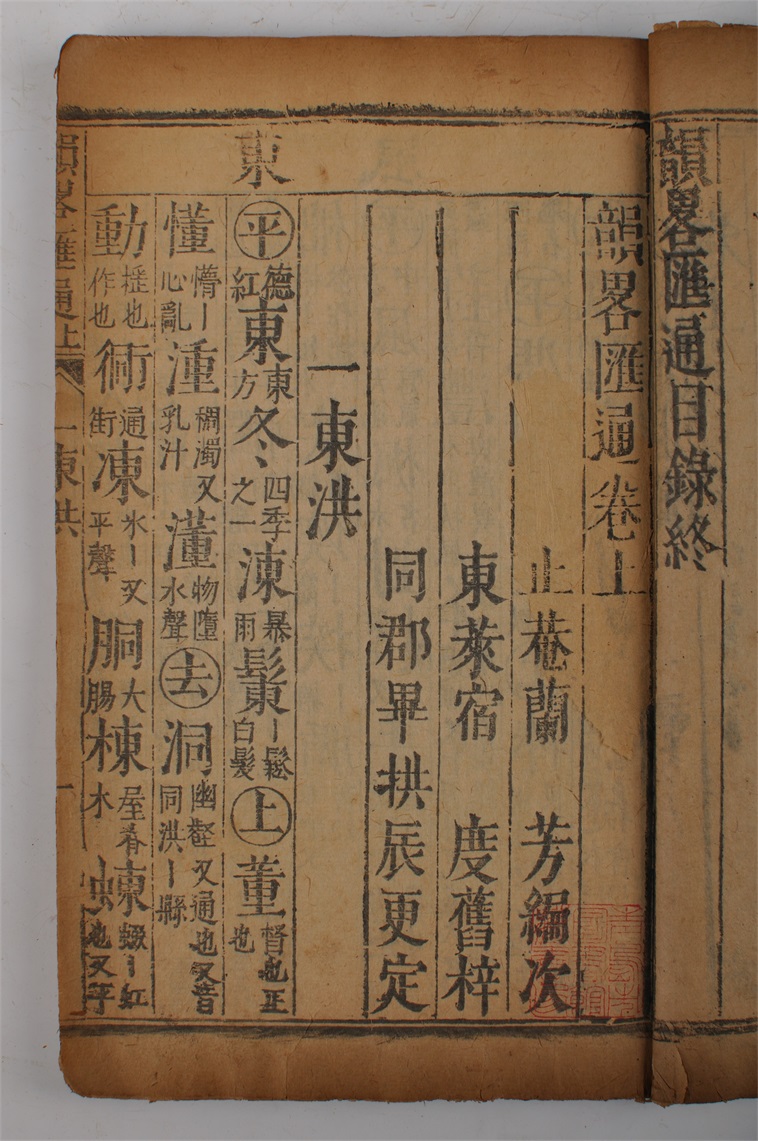 韻畧匯通目錄終
韻畧匯通卷上
止菴蘭　芳編次
東萊宿　度舊梓
同郡畢拱辰更定
一東洪
東
平德紅東東方冬四季之一涷暴雨鬆丨鬆白髮上董督也正也
懂懵丨心亂湩稠濁又乳汁𤀪物墮水聲去洞幽壑又通也又音同洪丨縣
動搖也作也衕通街凍氷丨又平聲胴大腸棟屋脊木蝀螮丨虹也又平
韻畧匯通上　一東洪　一